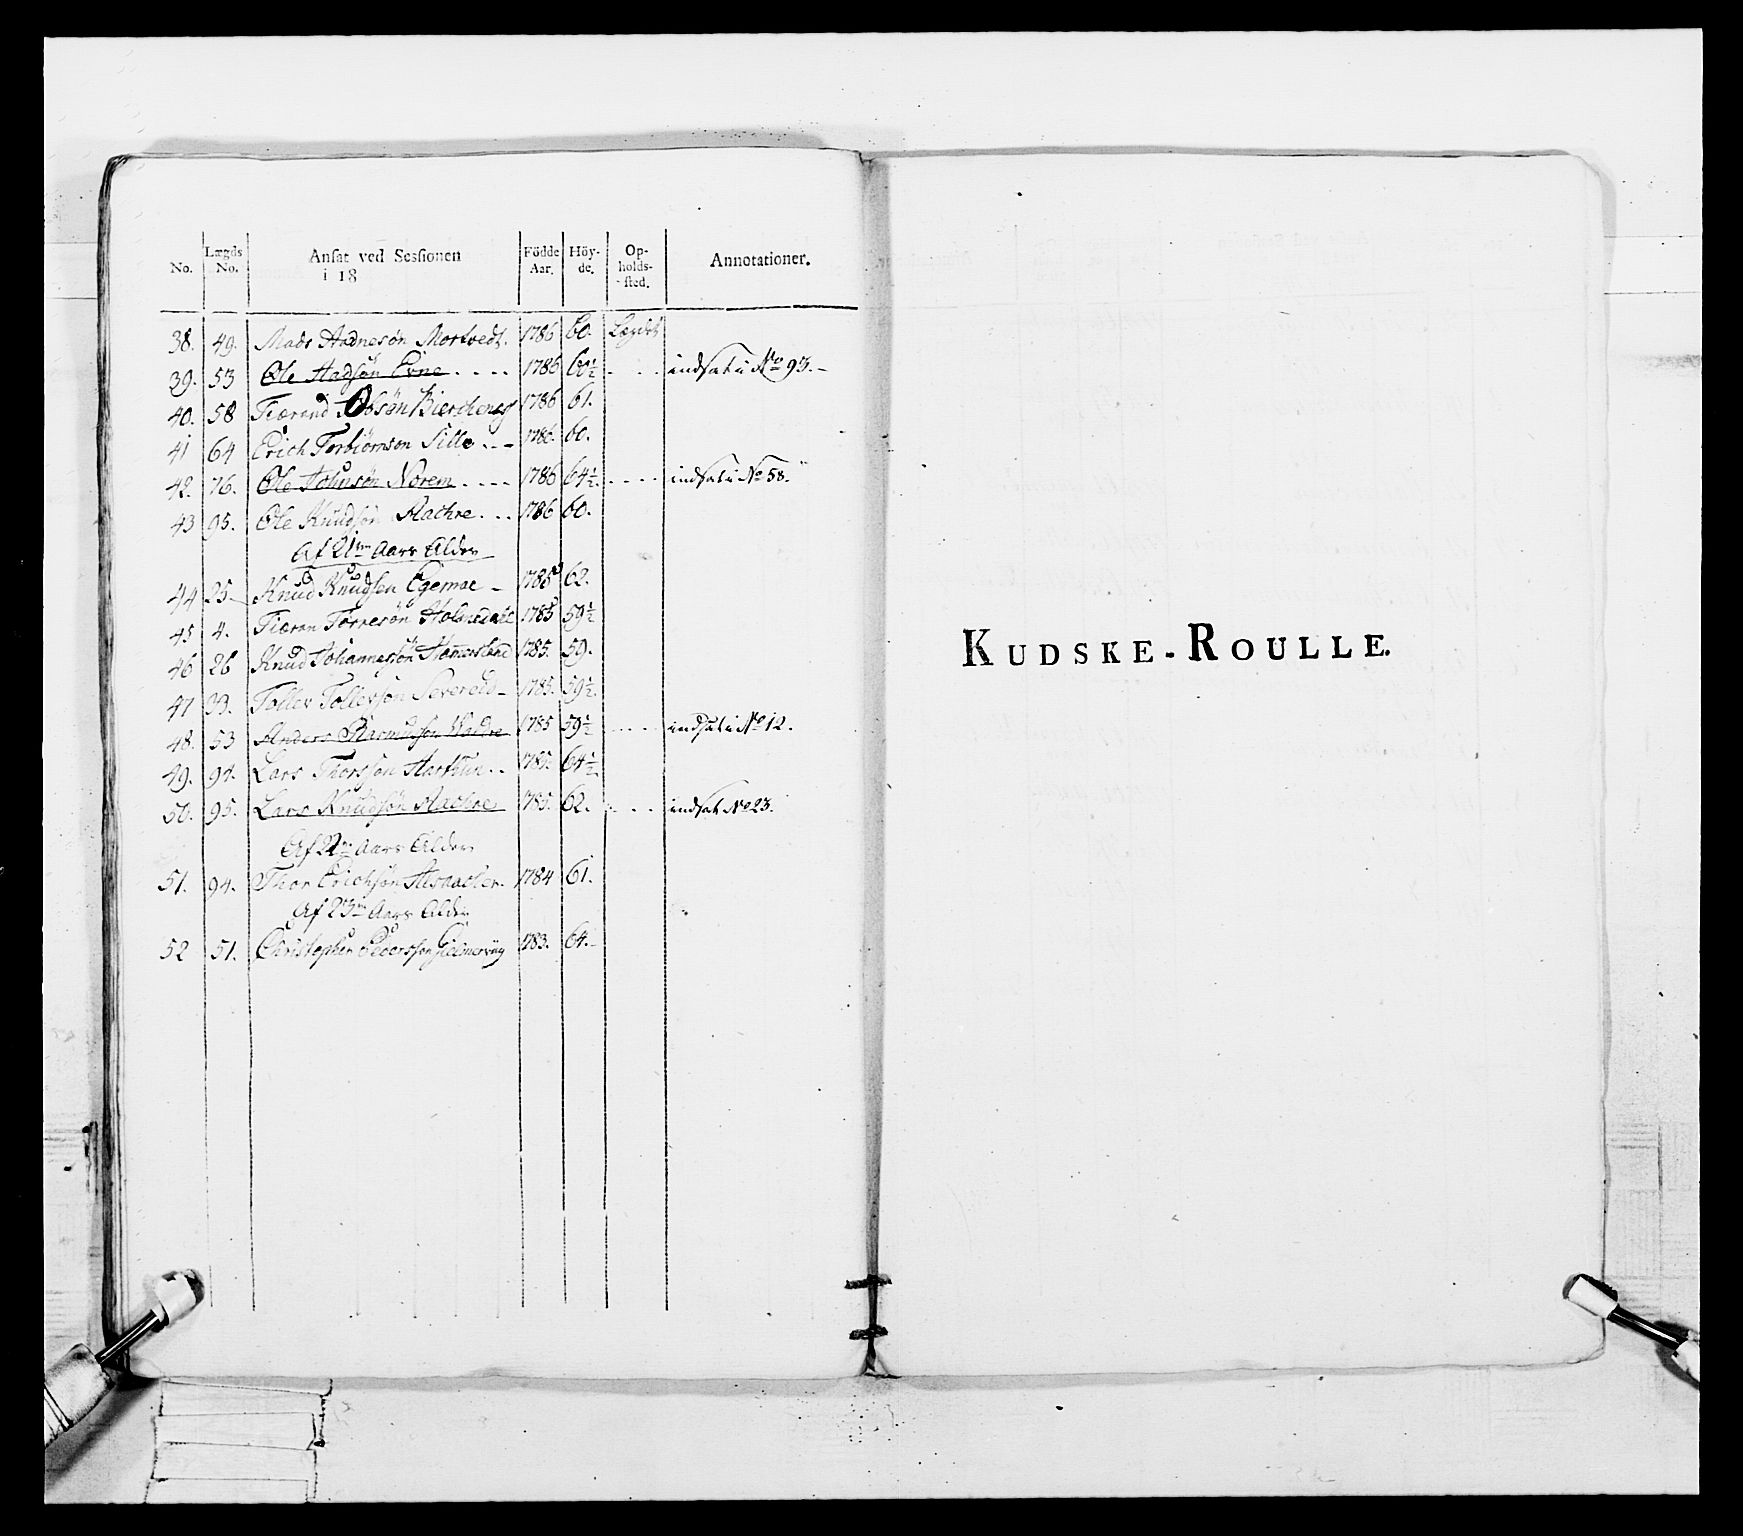 No. Lægds No. Ansat ved Sessionen i 18 Födde Aar. Höy-de. Op-holds-sted. Annotationer.
38. 49. Mads Aadnesön Mortvedt. 1786 60. Lægdet
39. 53 Ole Aadsön Evne .... 1786 60½ . . . indsat i No 93. –
40. 58 Tiærand Olsön Bierchenes 1786 61.
41 64 Erich Torbiörnsön Lille . . – 1786. 60.
42. 76. Ole Johnsön Norem . . . . 1786 64½ . . . . indsat i No 58.
43 95. Ole Knudsön Aachre . . . 1786 60.
Af 21de Aars Alder
44 25 Knud Knudsen Egemoe – 1785 62.
45 4. Tiæran Torresön 1785 59½
46 26 Knud Johannessön 1785. 59.
47 33. Toller Tollevsön Severeid – 1785. 59½
48. 53 Anders Rasmusson 1785 59½ . . . . indsat i No 12.
49. 94. Lars Thorssön . . 1785. 64½
50. 95. Lars Knudsön Aachre 1785. 62. . . . indsat No 23.
Af 22de Aars Alder
51. 94. Thor Erichsön 1784 61.
Af 23de Aars Alder
52 51. Christopher Pederssön 1783. 64. –
KUDSKE-ROULLE.